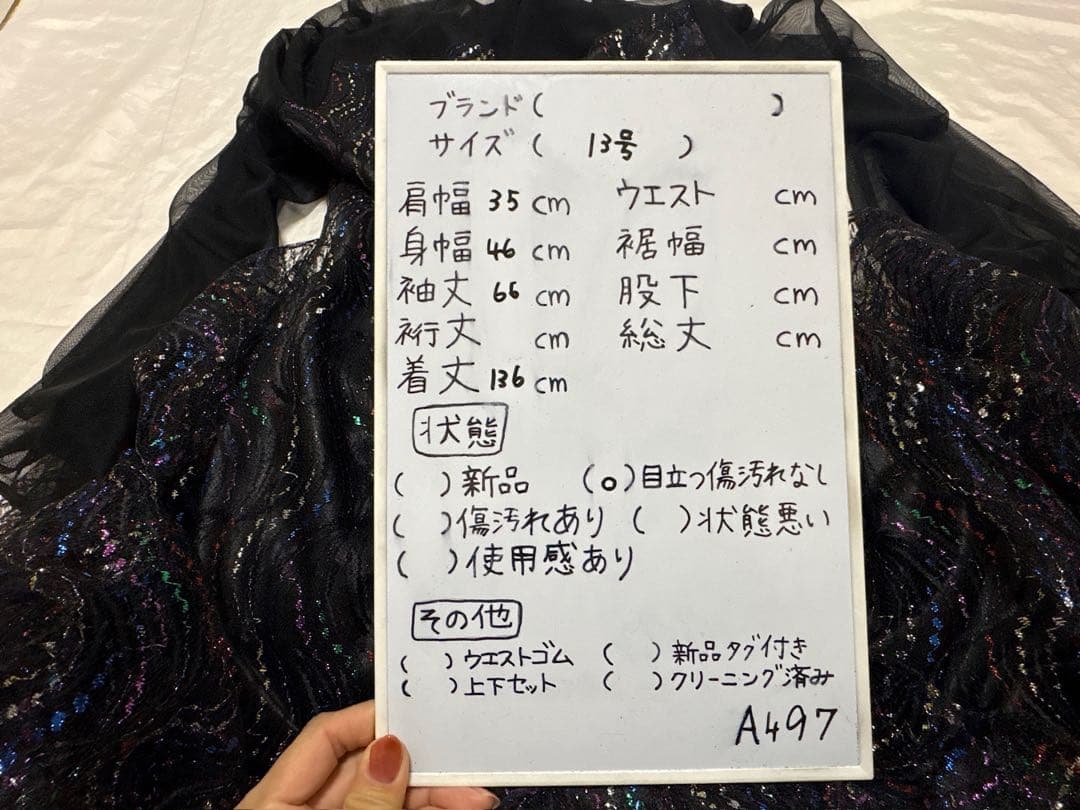 ブランド( )
サイズ( 13号 )
肩幅 35 cm ウエスト cm
身幅 46 cm 裾幅 cm
袖丈 66 cm 股下 cm
裄丈 cm 総丈 cm
着丈 136 cm
状態
( )新品 (o)目立つ傷汚れなし
( )傷汚れあり ( )状態悪い
( )使用感あり
その他
( )ウエストゴム ( )新品タグ付き
( )上下セット ( )クリーニング済み
A497